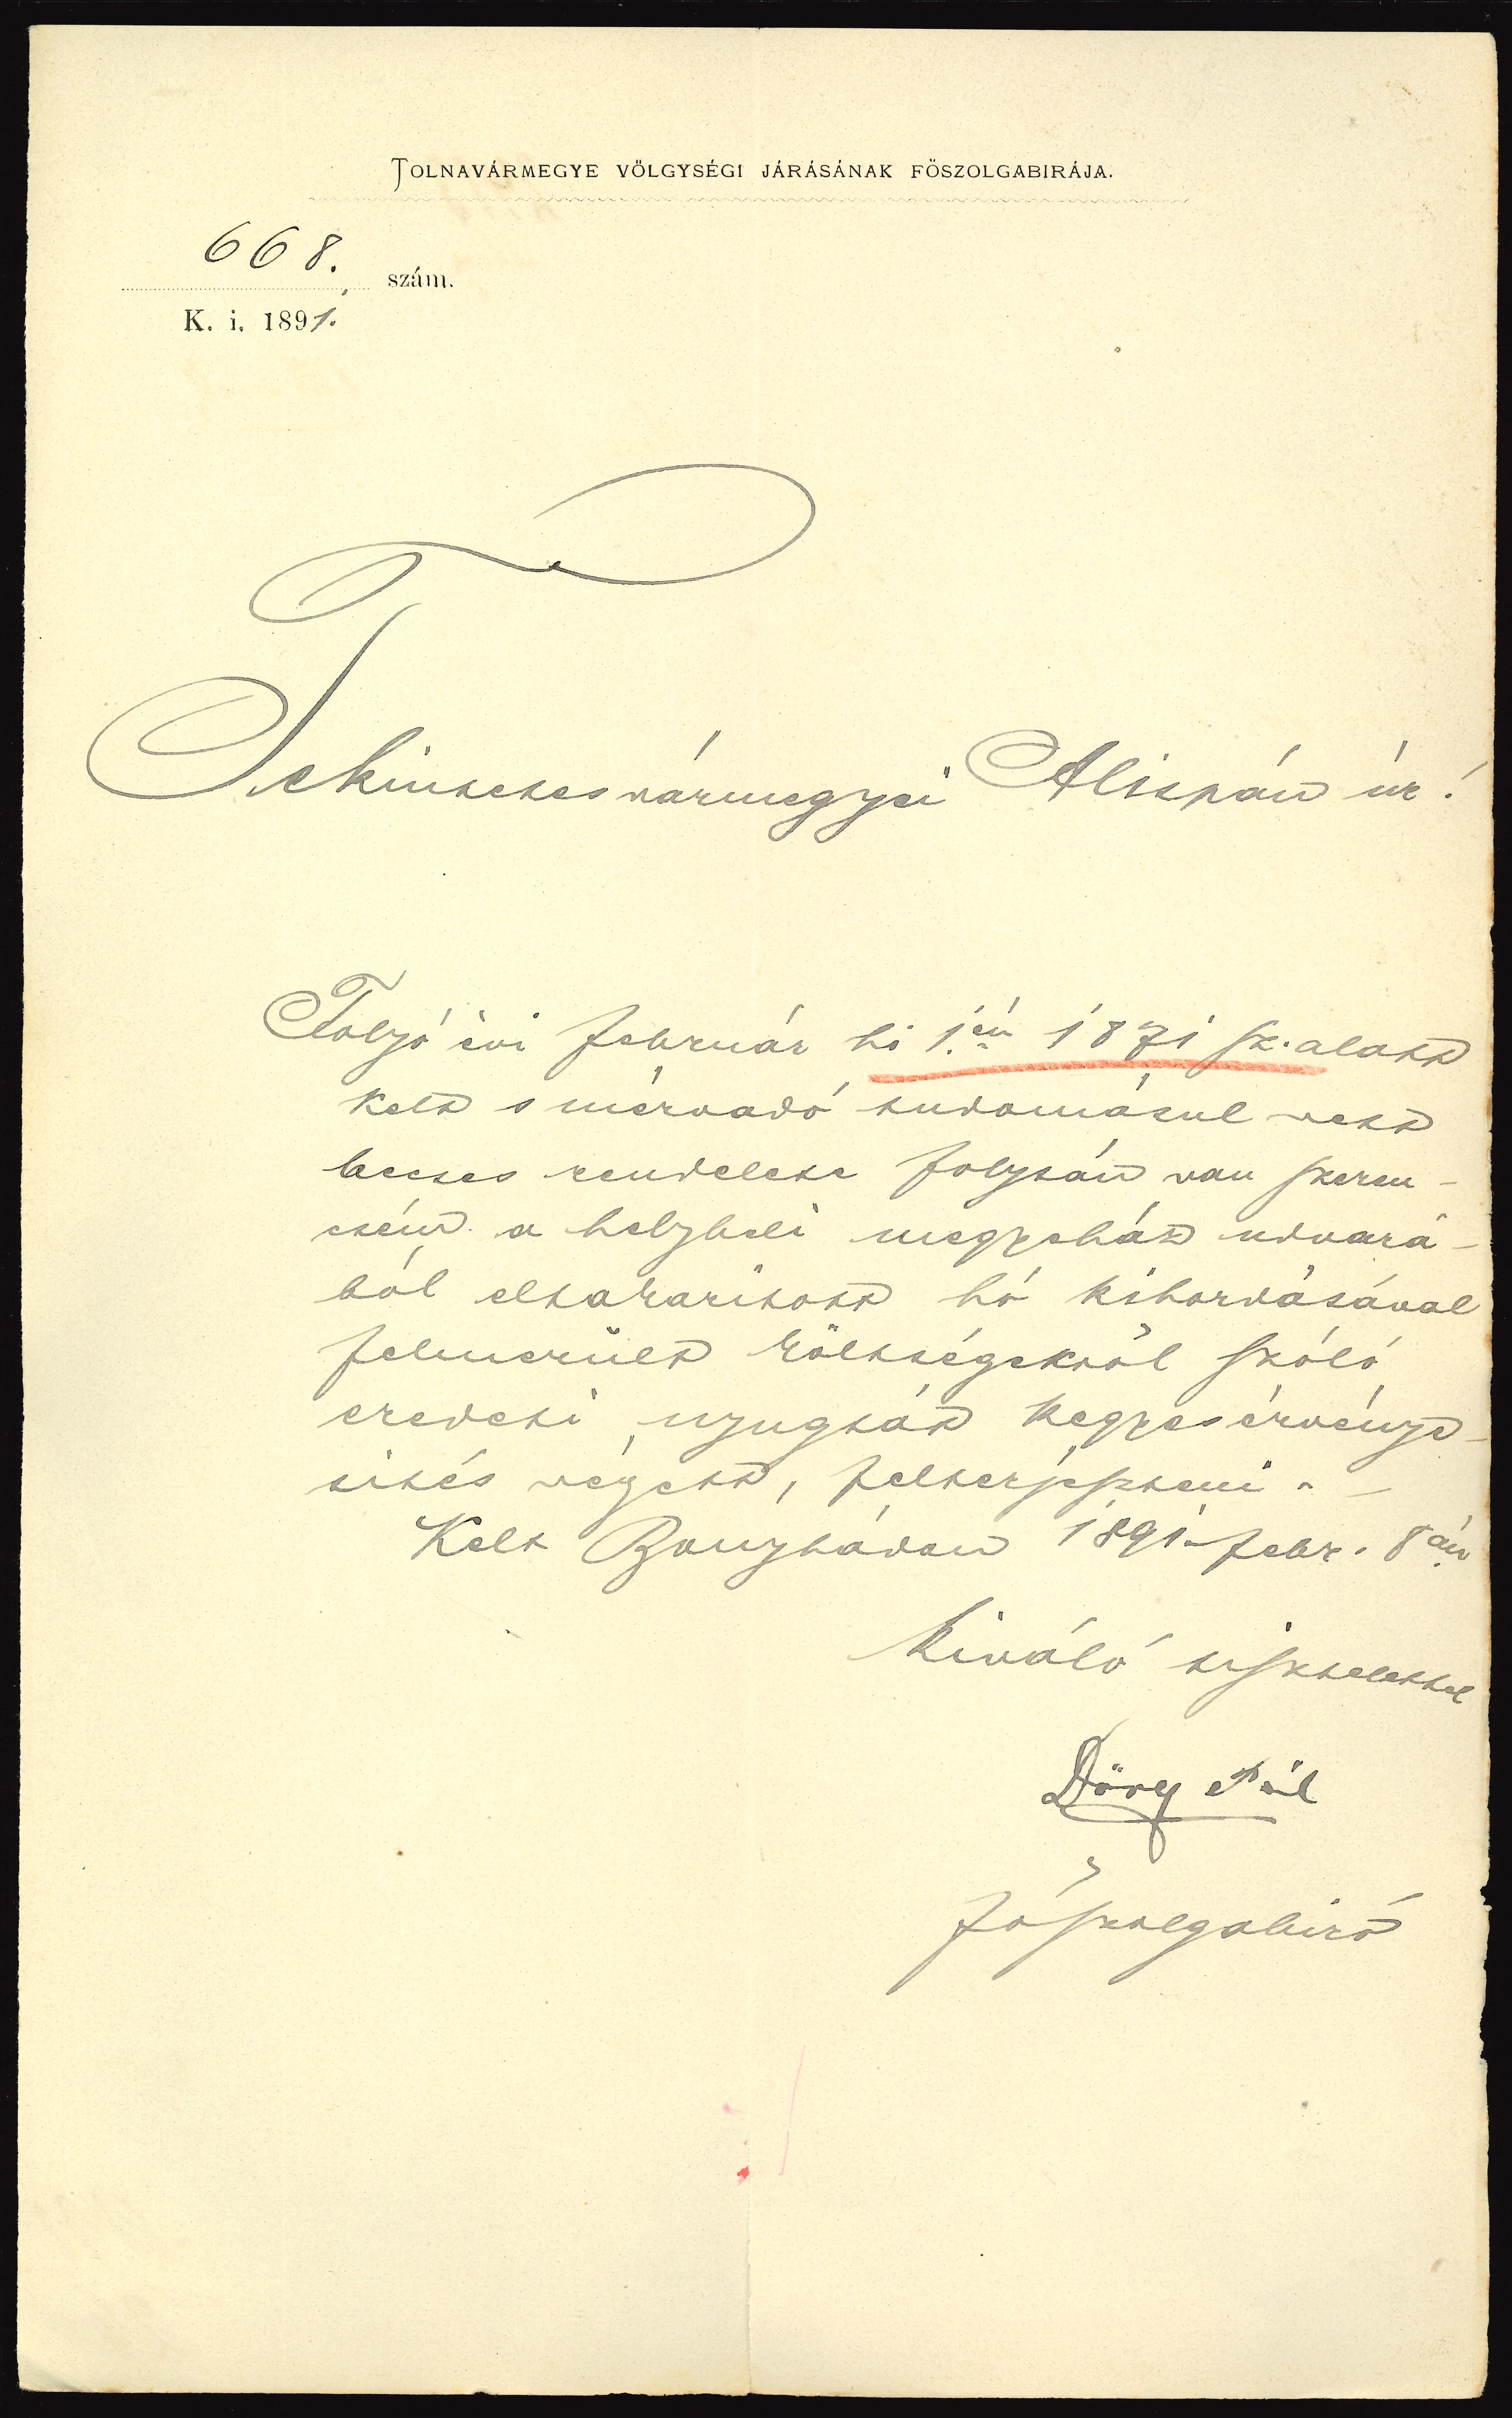 TOLNAVÁRMEGYE VÖLGYSÉGI JÁRÁSÁNAK FÖSZOLGABIRÁJA.
668. szám.
K. i. 1891.
Tekintetes vármegyei Alispán úr!
Folyó évi február hó 1.én 1871 sz. alatt
kelt s mérvadó tudomásul vett
becses rendelete folytán van szeren-
csém a helybeli megyeház udvará-
ból eltakarított hó kihordásával
felmerült költségekről szóló
eredeti nyugtát kegyes érvénye-
sítés végett, felterjeszteni. -
Kelt Bonyhádon 1891. febr. 8án
Kiváló tisztelettel
Döry Pál
főszolgabiró